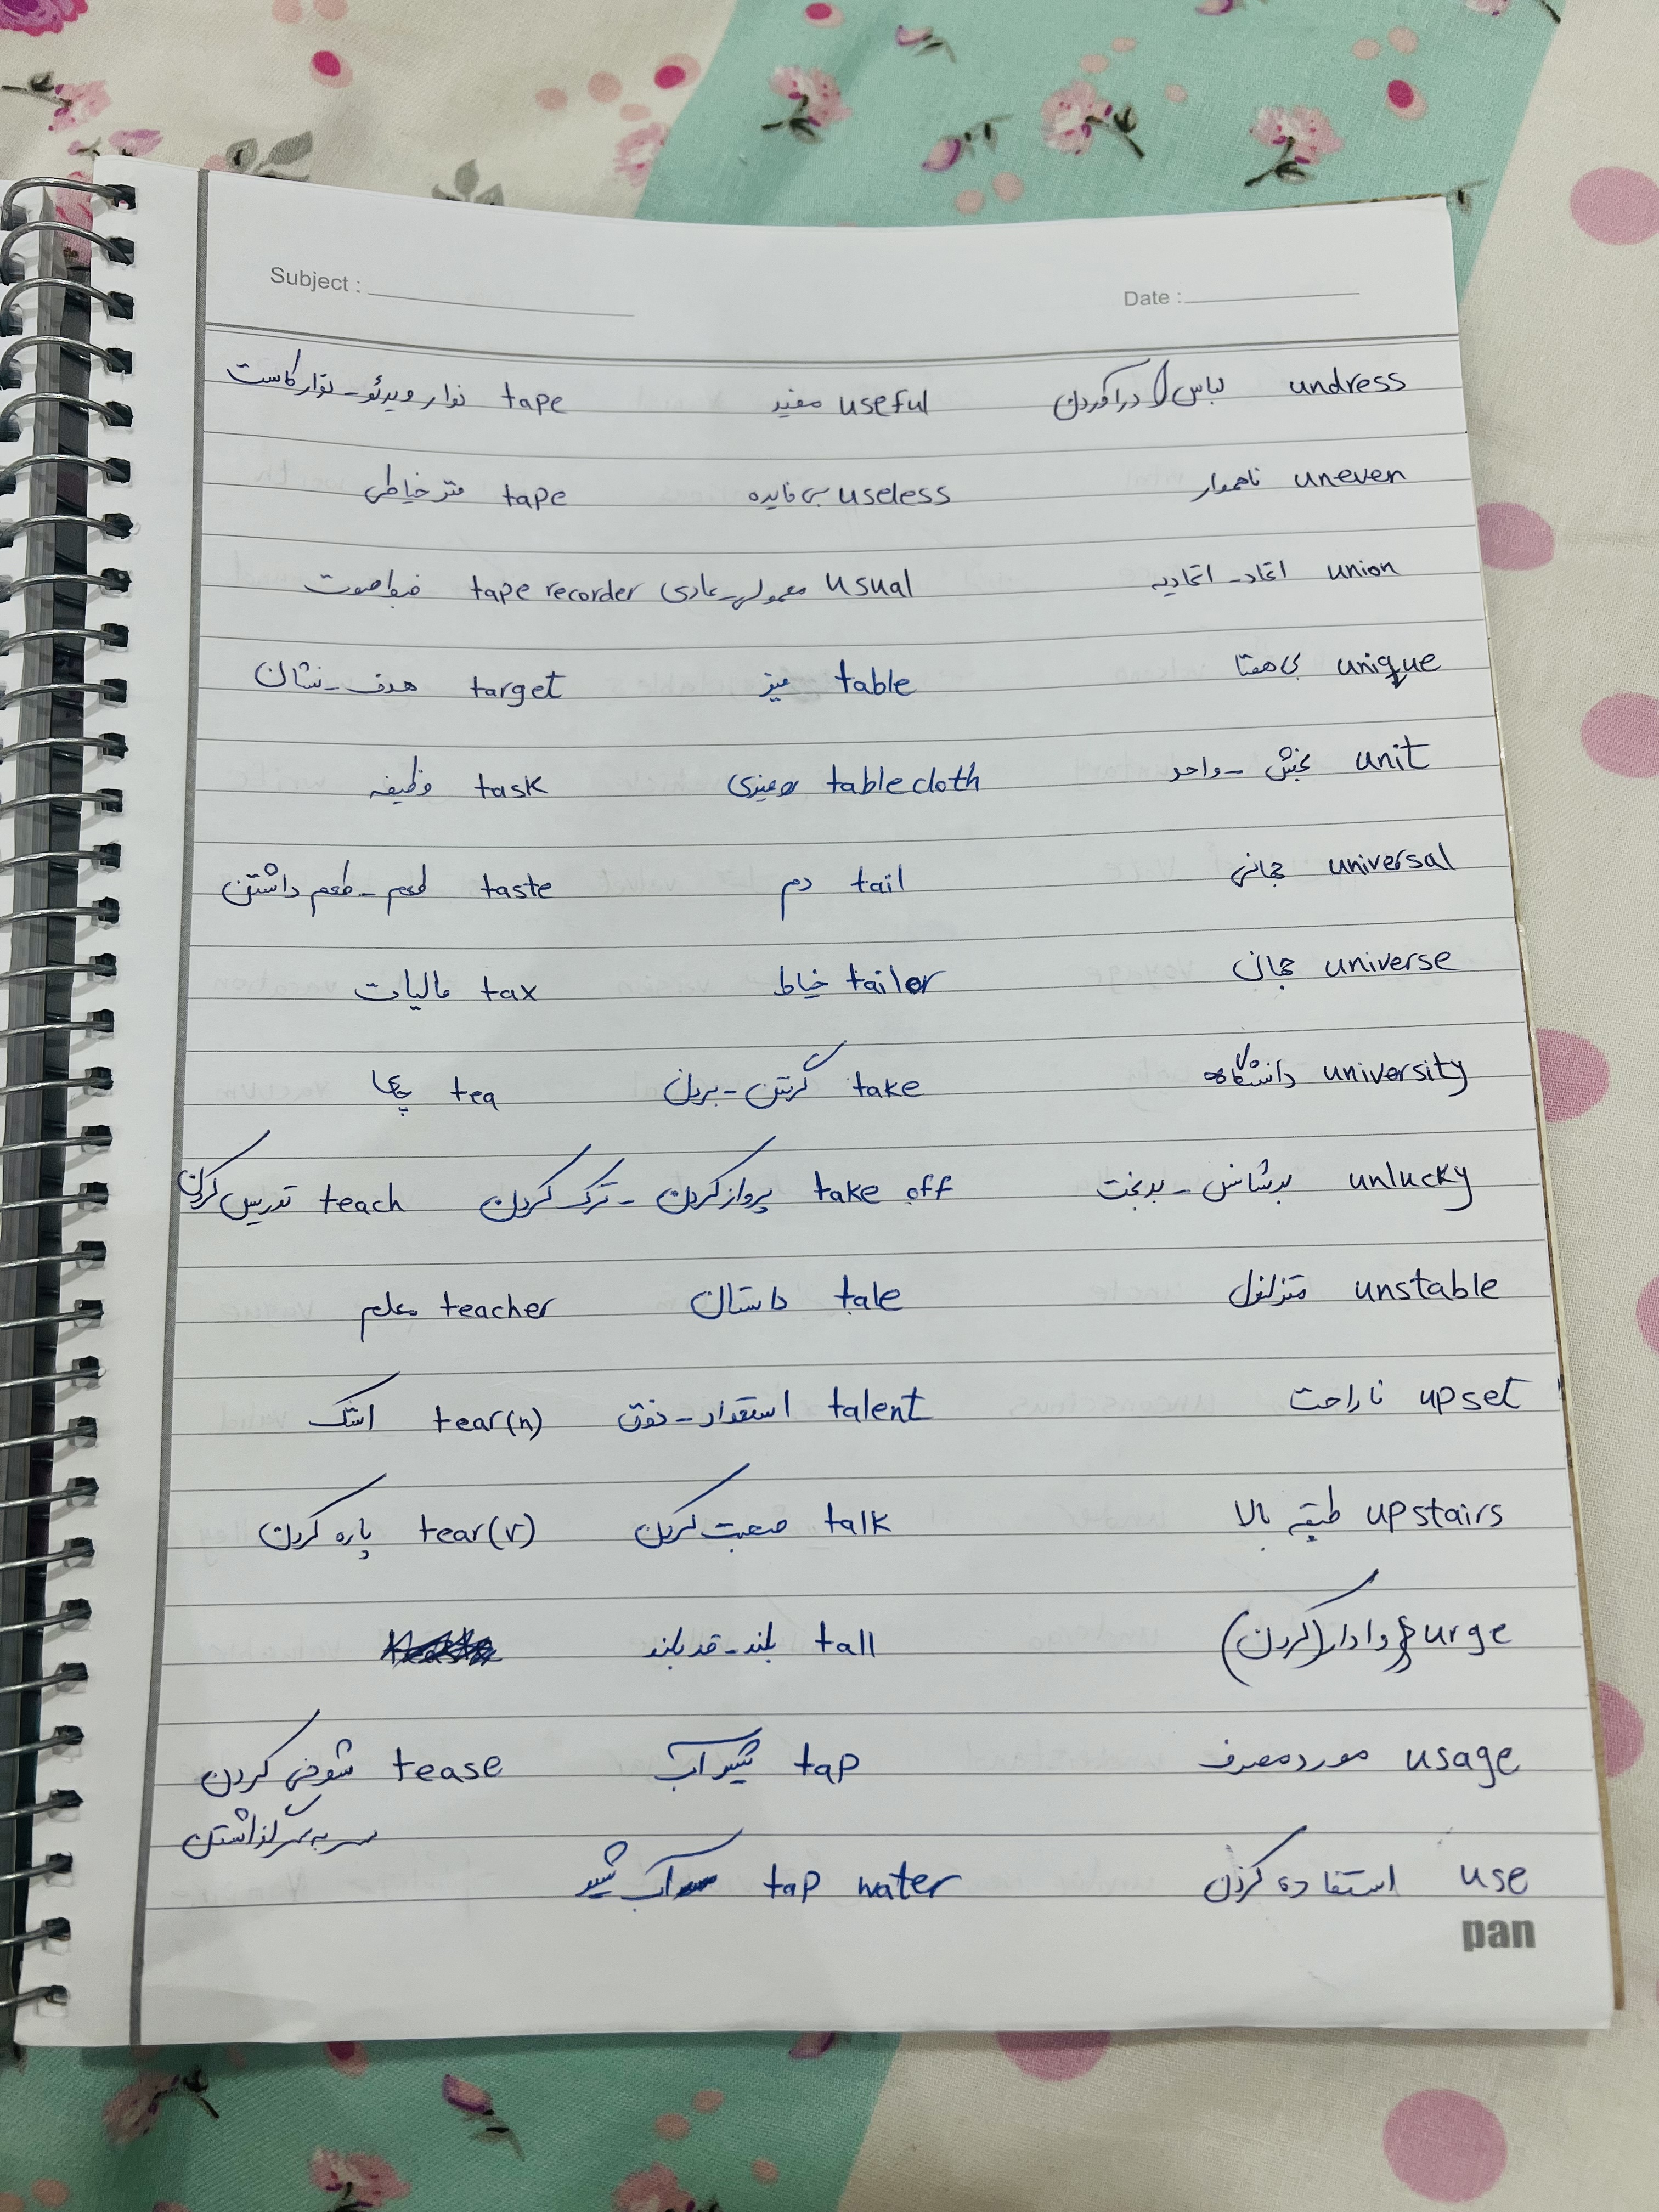 Subject :
Date :
undress لباس را درآوردن
uneven ناهموار
union اتحاد - اتحادیه
unique بی همتا
unit بخش - واحد
universal جهانی
universe جهان
university دانشگاه
unlucky بدشانس - بدبخت
unstable متزلزل
upset ناراحت
upstairs طبقه بالا
urge وادار (کردن)
usage مورد مصرف
use استفاده کردن
useful مفید
useless بی فایده
usual معمولی - عادی
table میز
tablecloth رومیزی
tail دم
tailor خیاط
take گرفتن - بردن
take off پرواز کردن - ترک کردن
tale داستان
talent استعداد - ذوق
talk صحبت کردن
tall بلند - قد بلند
tap شیر آب
tap water آب شیر
tape نوار ویدئو - نوار کاست
tape متر خیاطی
tape recorder ضبط صوت
target هدف - نشان
task وظیفه
taste طعم - طعم داشتن
tax مالیات
tea چای
teach تدریس کردن
teacher معلم
tear(n) اشک
tear(v) پاره کردن
tease شوخی کردن
سر به سر گذاشتن
pan